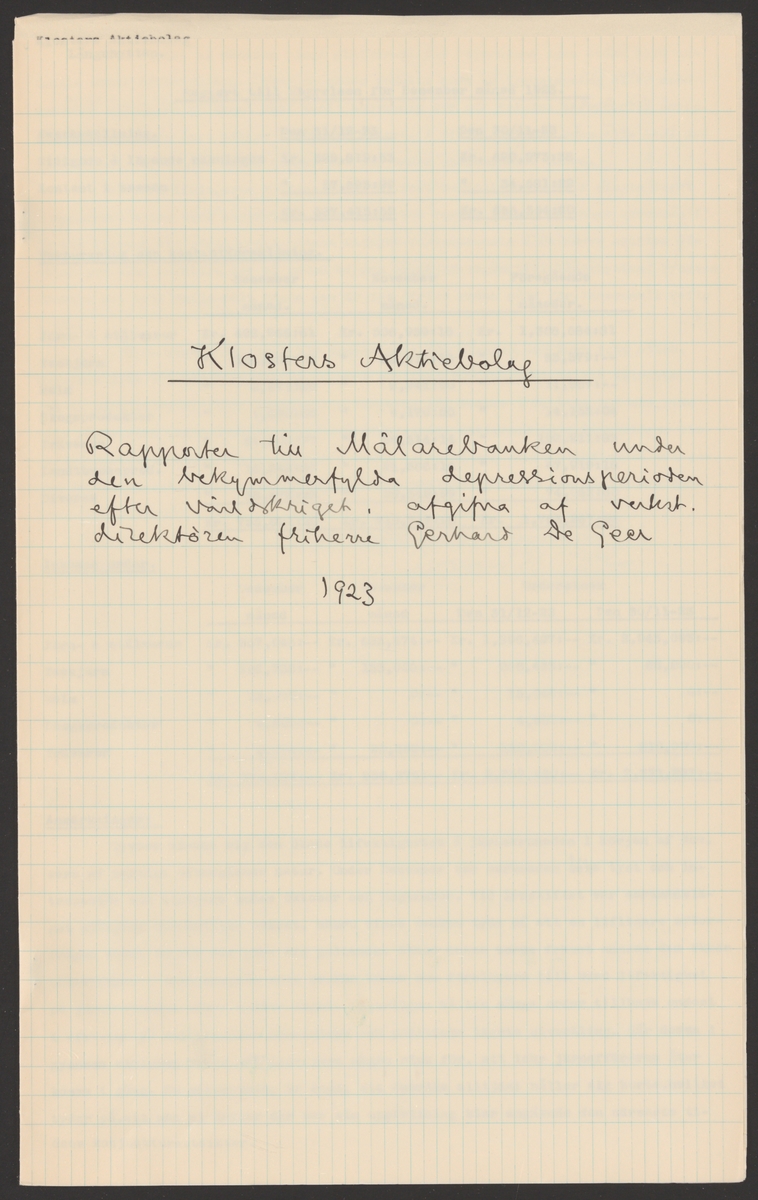 Klosters Aktiebolag
Klosters Aktiebolag
Rapporter till Mälarebanken under
den bekymmerfylda depressionsperioden
efter världskriget, afgifna af verkst.
direktören friherre Gerhard De Geer
1923